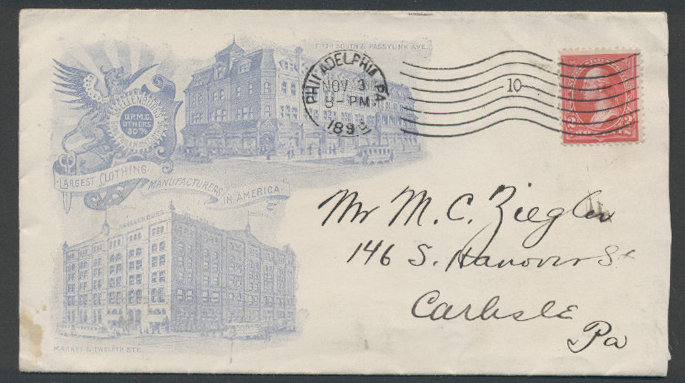 FIFTH SOUTH & PASSYUNK AVE.
PHILADELPHIA, PA.
NOV 3
8-PM
189
10
O.P.M.C.
OTHERS
LARGEST CLOTHING MANUFACTURERS IN AMERICA
MARKET & TWELFTH STS.
2 2
Mr M. C. Ziegler
146 S. Hanover St
Carlisle
Pa